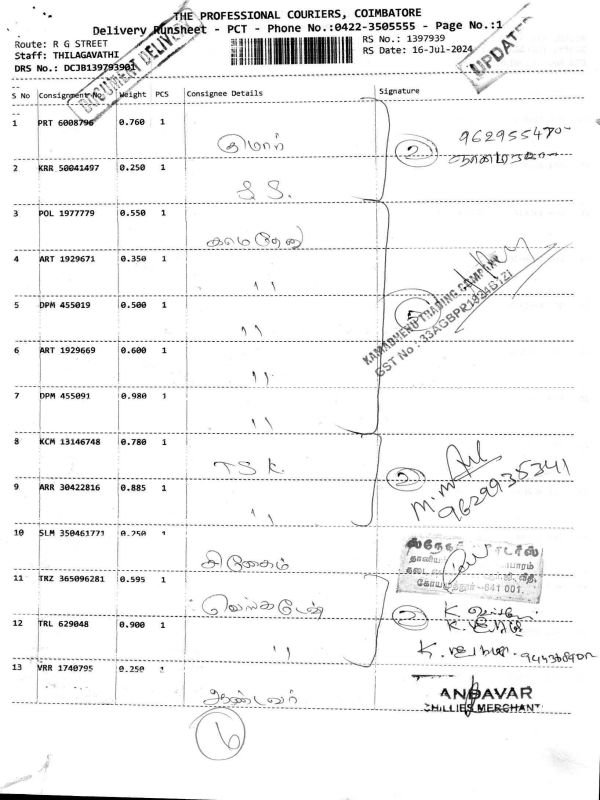 THE PROFESSIONAL COURIERS, COIMBATORE
Delivery Runsheet - PCT - Phone No.:0422-3505555 - Page No.:1
Route: R G STREET
RS No.: 1397939
Staff: THILAGAVATHI
RS Date: 16-Jul-2024
DRS No.: DCJB139793901
DOCUMENT DELIVERY
UPDATED
S No Consignment No Weight PCS Consignee Details Signature
1 PRT 6008796 0.760 1
குமார்
2
2 KRR 50041497 0.250 1
S.S.
3 POL 1977779 0.550 1
காமதேனு
4 ART 1929671 0.350 1
''
5 DPM 455019 0.500 1
''
KAMADHENU TRADING COMPANY
5
6 ART 1929669 0.600 1
''
7 DPM 455091 0.980 1
''
8 KCM 13146748 0.780 1
TSK
2
9629935341
9 ARR 30422816 0.885 1
''
10 SLM 350461771 0.250 1
சினேகம்
641 001.
11 TRZ 365096281 0.595 1
வெங்கடேஷ்
2
12 TRL 629048 0.900 1
''
13 VRR 1740795 0.250 1
ஆண்டவர்
ANDAVAR
CHILLIES MERCHANT
6